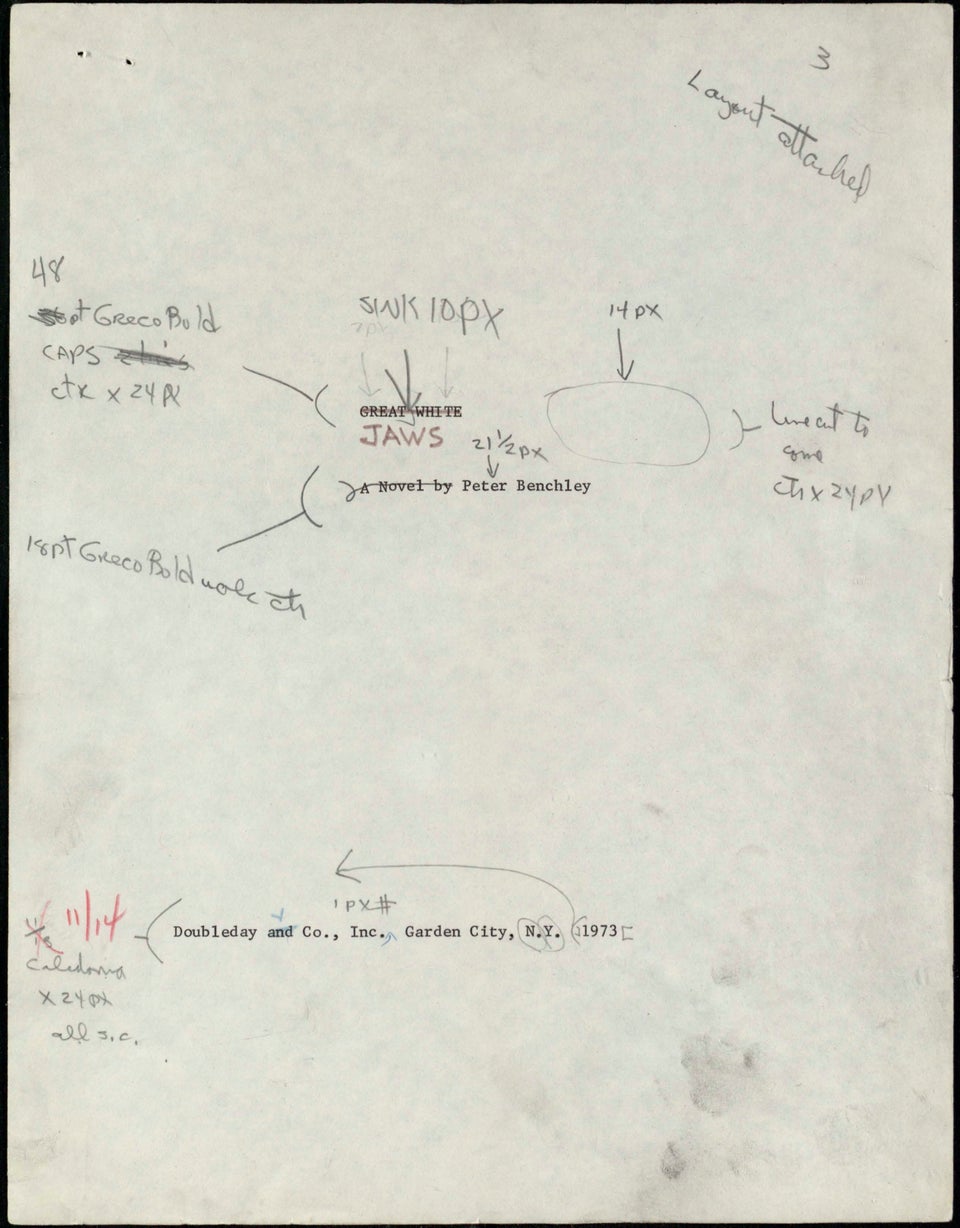 3
Layout attached
48
pt Greco Bold
CAPS
ctr x 24 px
SINK 10 px
7 px
14 px
GREAT WHITE
JAWS
21 1/2 px
A Novel by Peter Benchley
Linecut to
come
ctr x 24 px
18 pt Greco Bold ctr
1 px #
11/14
Doubleday and Co., Inc., Garden City, N.Y. 1973
Caledonia
x 24 px
all s.c.